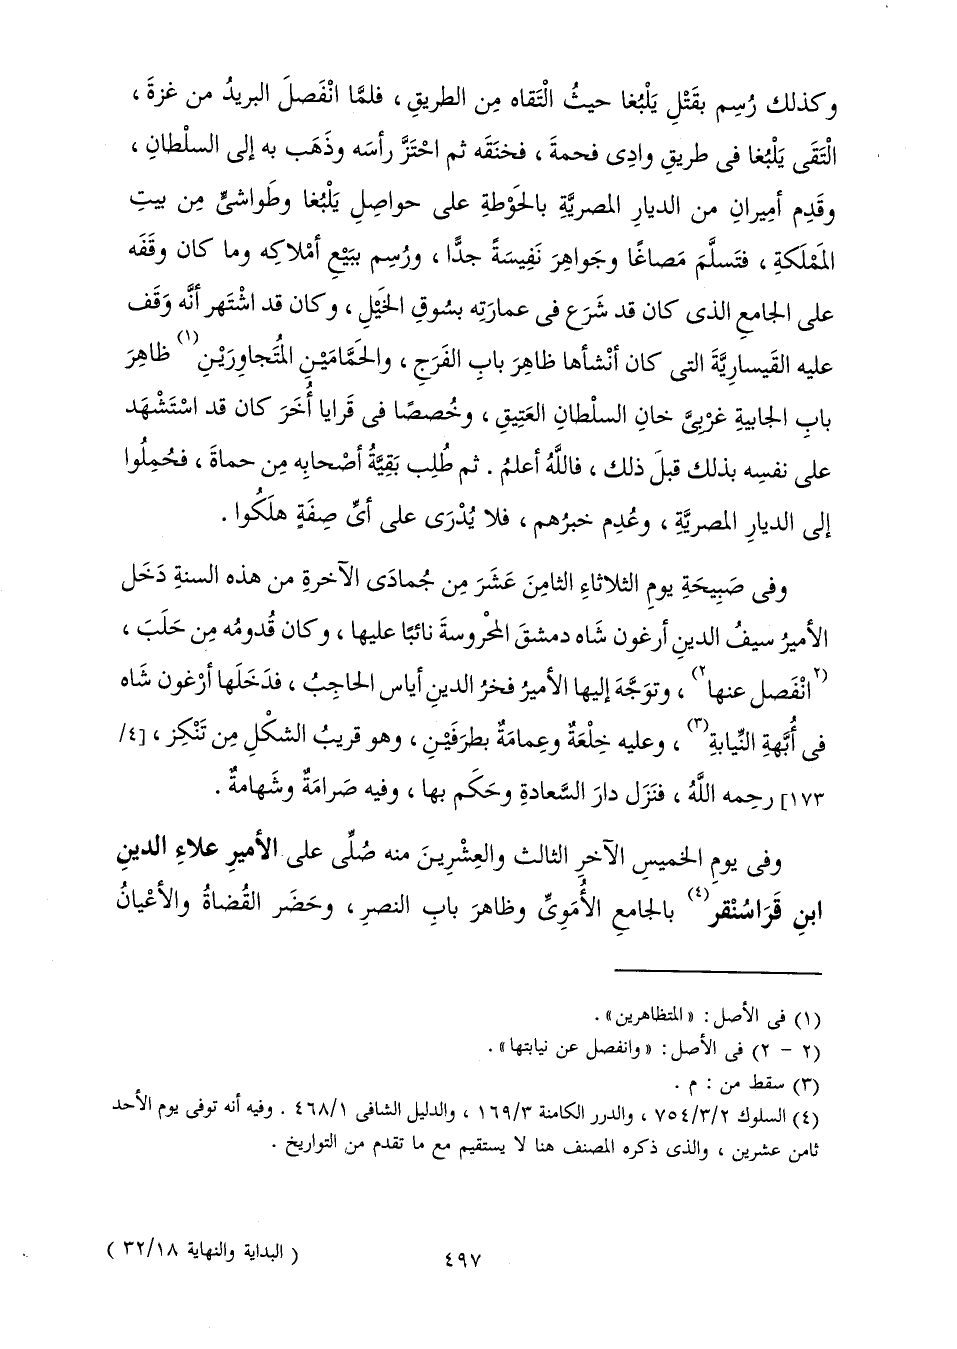 وكذلك رُسِم بقَتْلِ يَلْبُغا حيثُ الْتَقاه مِن الطريقِ ، فلمَّا انْفَصلَ البريدُ من غزةَ ،
الْتَقَى يَلْبُغا فى طريقِ وادِى فحمةَ ، فخنَقه ثم احْتَزَّ رأسَه وذَهَب به إلى السلْطانِ ،
وقَدِم أمِيرانِ من الديارِ المصريَّةِ بالحَوْطةِ على حواصلِ يَلْبُغا وطَواشىٌّ مِن بيتِ
المَمْلَكةِ ، فتَسلَّمَ مَصاغًا وجَواهرَ نَفِيسَةً جدًّا ، ورُسِم ببَيْعِ أمْلاكِه وما كان وقَفَه
على الجامعِ الذى كان قد شَرَع فى عمارَتِه بسُوقِ الخَيْلِ ، وكان قد اشْتَهر أنَّه وَقَف
عليه القَيساريَّةَ التى كان أنْشأها ظاهِرَ بابِ الفَرَجِ ، والحَمَّامَيْنِ المُتَجاوِرَيْنِ(١) ظاهِرَ
بابِ الجابيةِ غَرْبِىَّ خانِ السلْطانِ العَتِيقِ ، وخُصصًا فى قَرايا أُخَرَ كان قد اسْتَشْهَد
على نفسِه بذلك قبلَ ذلك ، فاللَّهُ أعلمُ . ثم طُلِب بَقِيَّةُ أصْحابِه مِن حماةَ ، فحُمِلُوا
إلى الديارِ المصريَّةِ ، وعُدِم خبرُهم ، فلا يُدْرَى على أىِّ صِفَةٍ هلَكُوا .
وفى صَبِيحَةِ يومِ الثلاثاءِ الثامنَ عَشَرَ مِن جُمادَى الآخرةِ من هذه السنةِ دَخَل
الأميرُ سيفُ الدينِ أرغون شَاه دمشقَ المحْروسةَ نائبًا عليها ، وكان قُدومُه مِن حَلَبَ ،
(٢انْفَصل عنها٢) ، وتوَجَّهَ إليها الأميرُ فخرُ الدينِ أياس الحاجبُ ، فدَخَلَها أرْغون شَاه
فى أُبَّهةِ النِّيابةِ(٣) ، وعليه خِلْعَةٌ وعِمامَةٌ بطرفَيْنِ ، وهو قريبُ الشكْلِ مِن تَنْكِز ، [٤/
١٧٣] رحِمه اللَّهُ ، فنَزَل دارَ السَّعادةِ وحَكَم بها ، وفيه صَرامَةٌ وشَهامةٌ .
وفى يومِ الخميسِ الآخرِ الثالث والعِشْرِينَ منه صُلِّى على الأميرِ علاءِ الدينِ
ابنِ قَرَاسُنْقر(٤) بالجامعِ الأُمَوِىِّ وظاهرَ بابِ النصرِ ، وحَضَر القُضاةُ والأعْيانُ
(١) فى الأصل : «المتظاهرين» .
(٢ - ٢) فى الأصل : «وانفصل عن نيابتها» .
(٣) سقط من : م .
(٤) السلوك ٧٥٤/٣/٢ ، والدرر الكامنة ١٦٩/٣ ، والدليل الشافى ٤٦٨/١ . وفيه أنه توفى يوم الأحد
ثامن عشرين ، والذى ذكره المصنف هنا لا يستقيم مع ما تقدم من التواريخ .
٤٩٧
( البداية والنهاية ٣٢/١٨ )